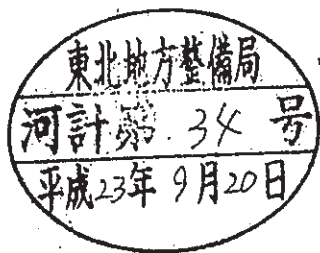 東北地方整備局
河計第34号
平成23年9月20日